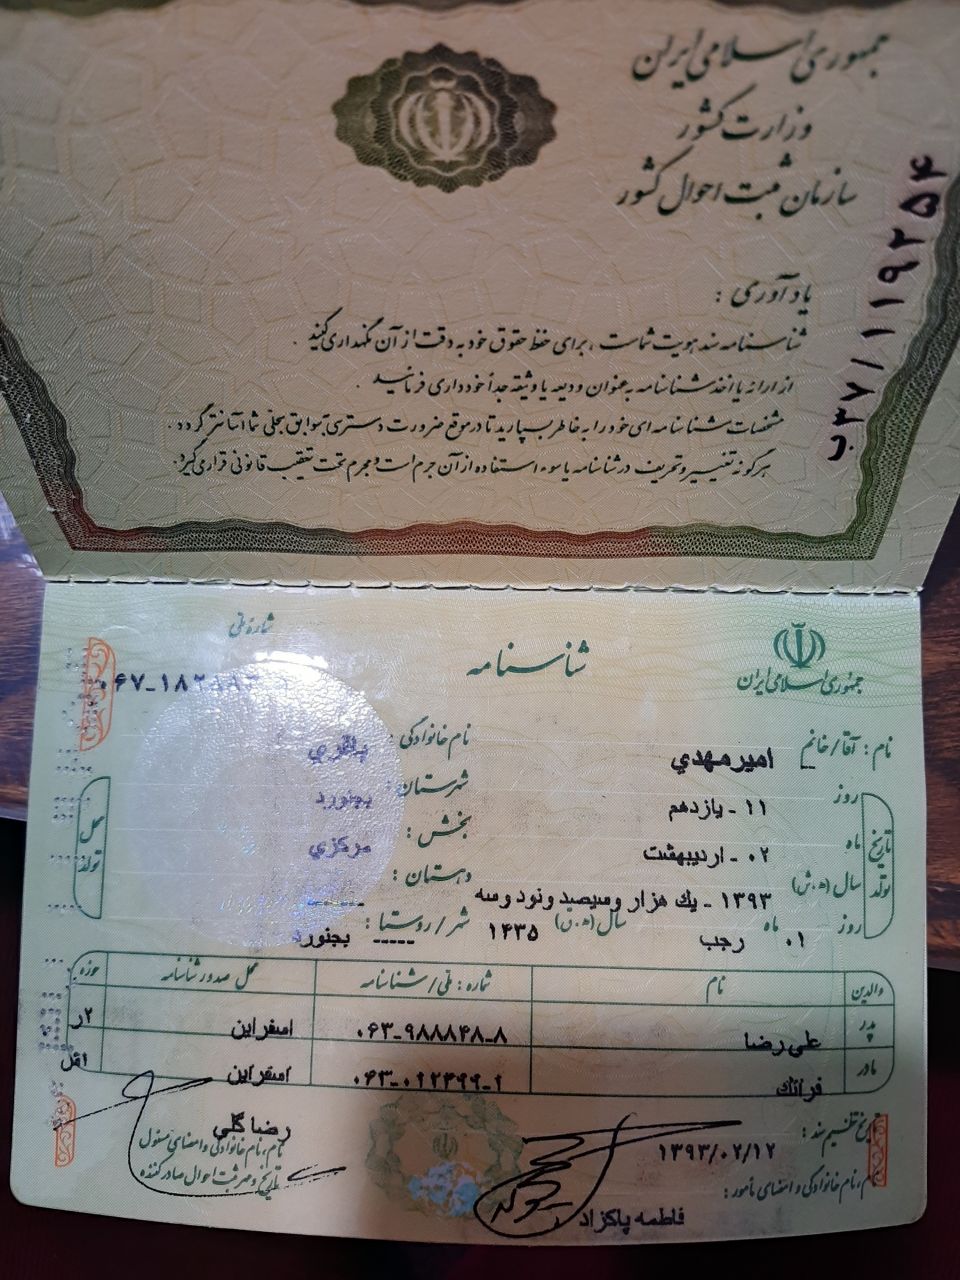 جمهوری اسلامی ایران
وزارت کشور
سازمان ثبت احوال کشور
ب۳۷/۱۱۹۲۵۴
یادآوری :
شناسنامه سند هویت شماست ، برای حفظ حقوق خود به دقت از آن نگهداری کنید .
از ارائه یا اخذ شناسنامه به عنوان ودیعه یا وثیقه جداً خودداری فرمائید .
مشخصات شناسنامه ای خود را به خاطر بسپارید تا در موقع ضرورت دسترسی بسوابق سجلی شما آسانتر گردد .
هرگونه تغییر و تحریف در شناسنامه یا سوء استفاده از آن جرم است و مجرم تحت تعقیب قانونی قرار می گیرد .
جمهوری اسلامی ایران
شناسنامه
شماره ملی
نام : آقا / خانم امیرمهدي
نام خانوادگی : باقري
تاریخ تولد
روز ۱۱ - یازدهم
ماه ۰۲ - اردیبهشت
سال (ه.ش) ۱۳۹۳ - یك هزار و سیصد و نود و سه
روز ۰۱ ماه رجب سال (ه.ق) ۱۴۳۵
محل تولد
شهرستان : بجنورد
بخش : مرکزي
دهستان : -----
شهر / روستا : ----- بجنورد
والدین نام شماره : ملی / شناسنامه محل صدور شناسنامه حوزه
پدر علی رضا ۰۶۳-۹۸۸۸۴۸-۸ اسفراین ۲ر
مادر فرانك ۰۶۳-۰۱۲۴۹۹-۱ اسفراین
تاریخ تنظیم سند : ۱۳۹۳/۰۲/۱۲
نام، نام خانوادگی و امضای مأمور :
فاطمه پاکزاد
رضا گلی
نام، نام خانوادگی و امضای مسئول
تاریخ و مهر ثبت احوال صادرکننده